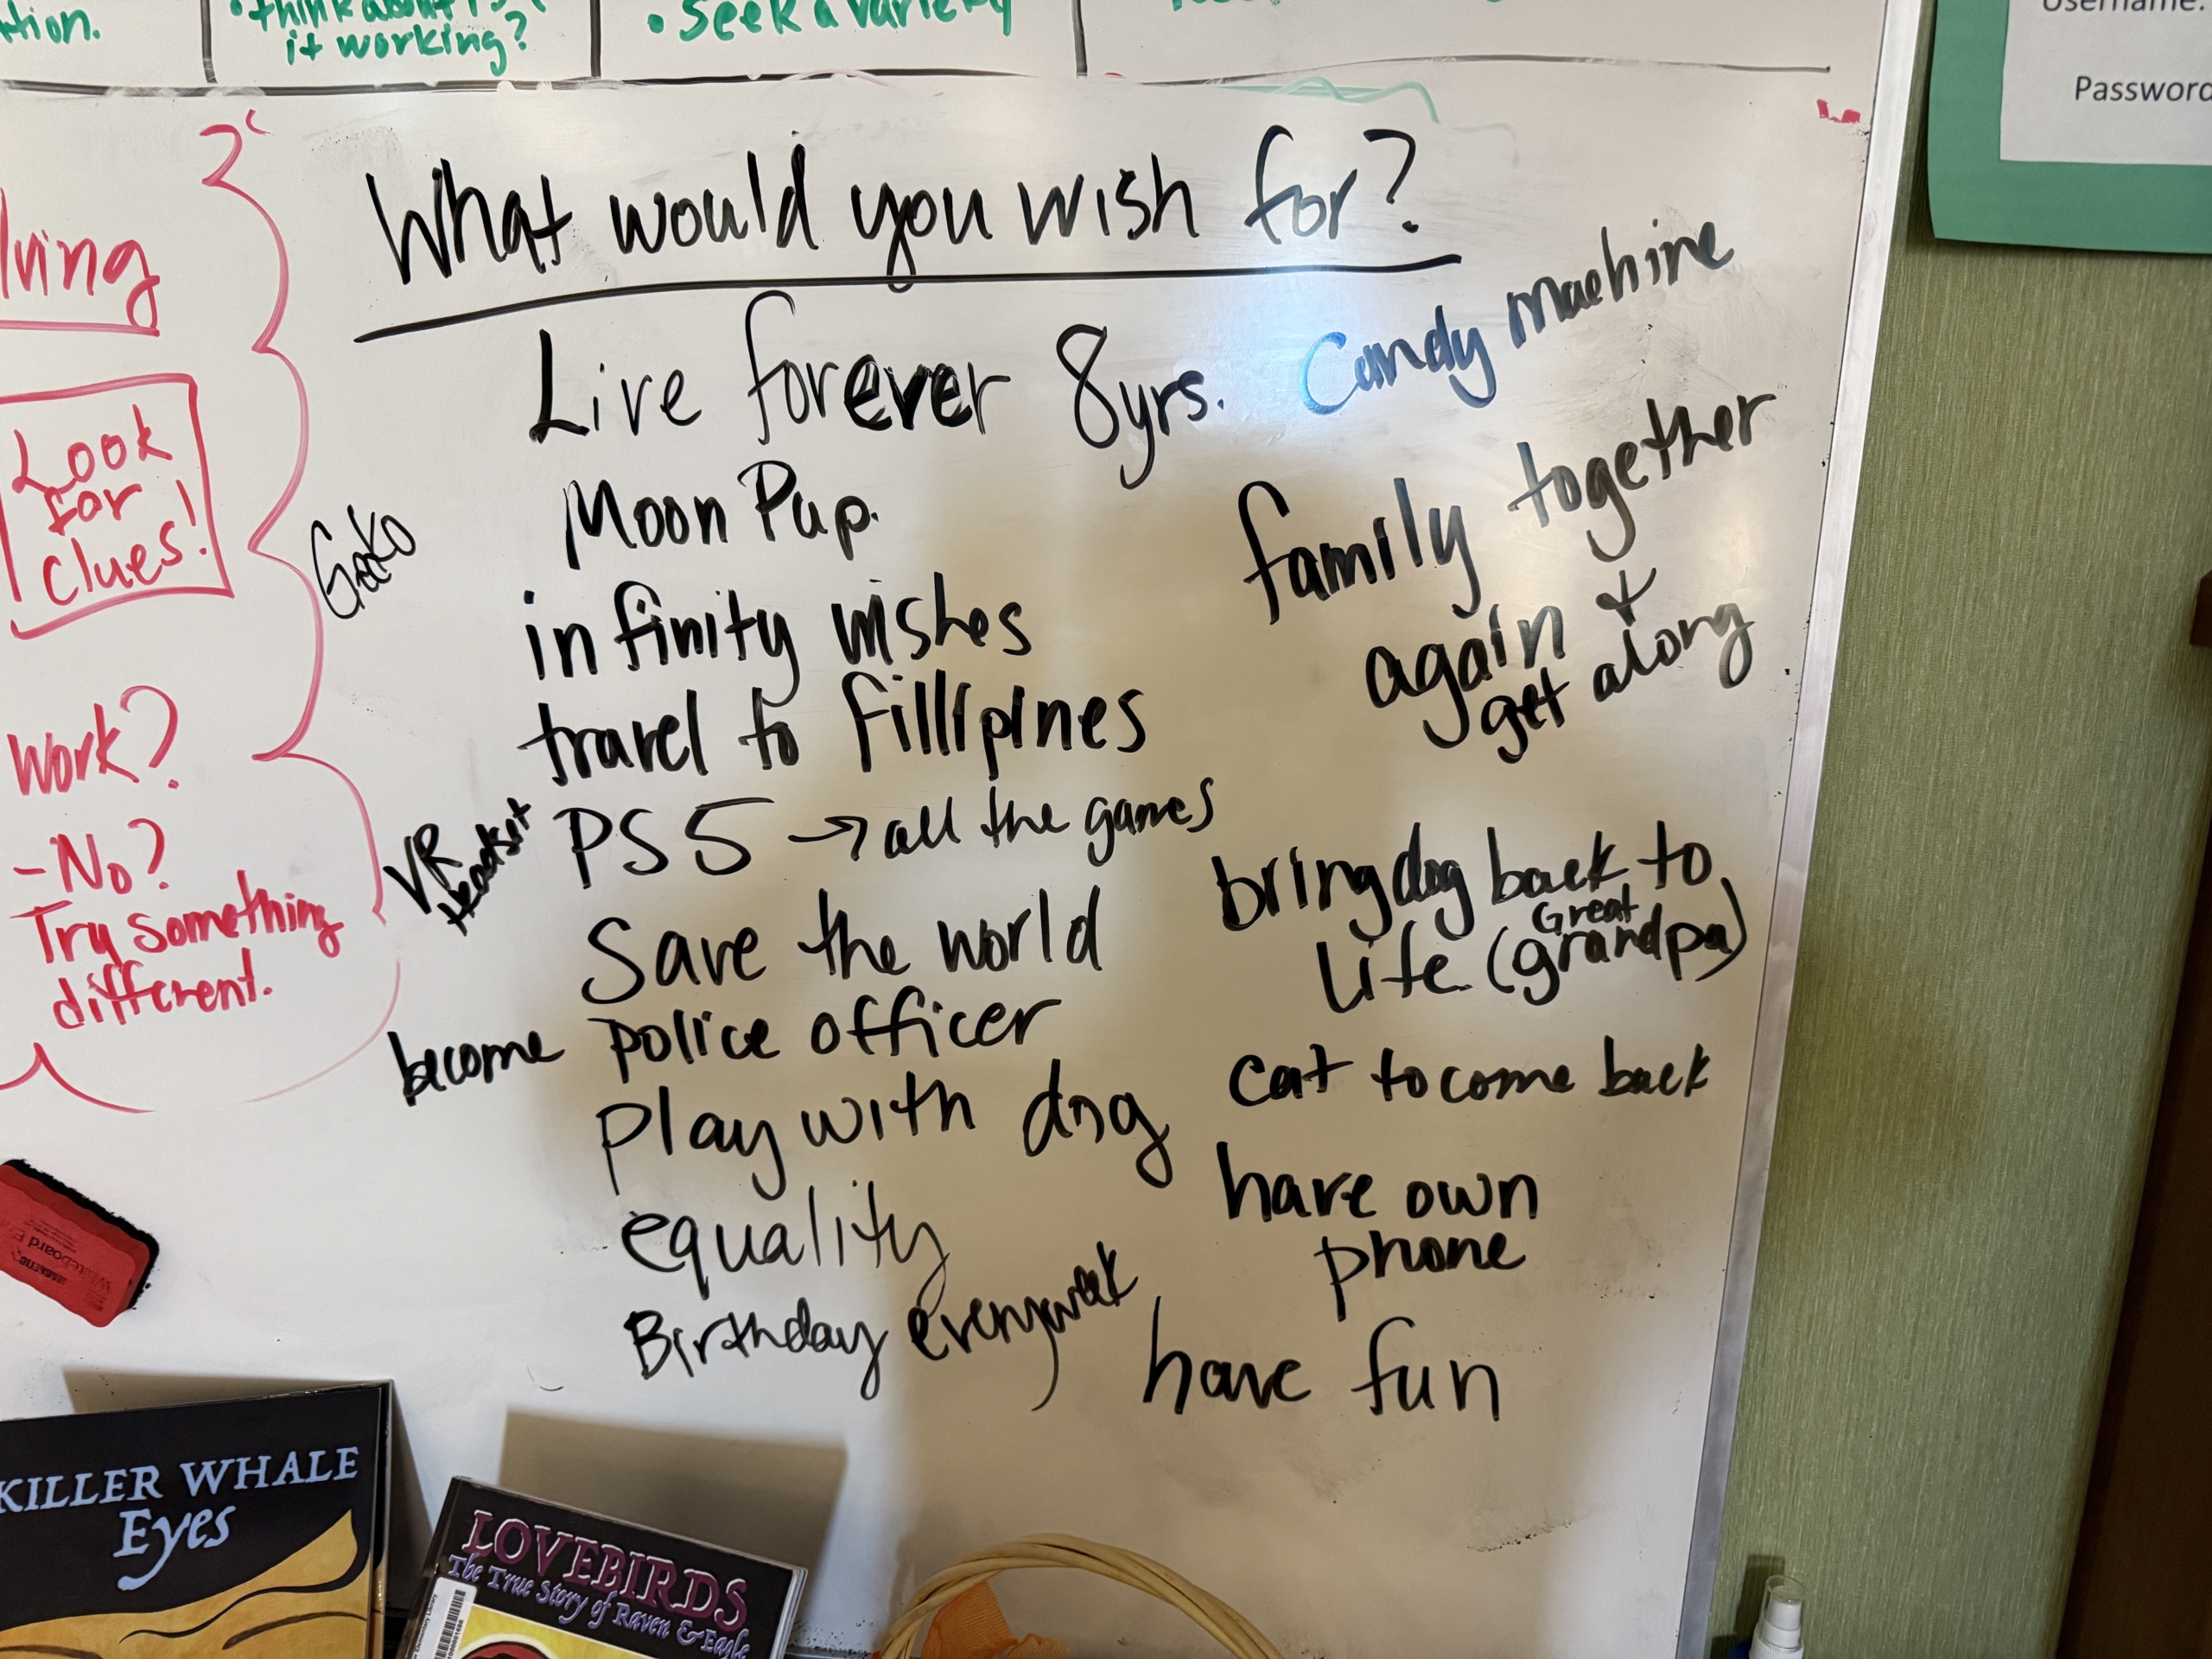 tion.
• think about
it working?
• Seek a variety
Username:
Password
lving
Look
for
clues!
work?
-No?
Try something
different.
What would you wish for?
Live forever 8yrs.
Candy machine
Moon Pup.
Geko
infinity wishes
travel to fillipines
PS5 → all the games
VR
Headset
Save the world
become police officer
play with dog
equality
Birthday every week
family together
again +
get along
bring dog back to
life (Great grandpa)
cat to come back
have own
phone
have fun
KILLER WHALE
Eyes
LOVEBIRDS
The True Story of Raven & Eagle